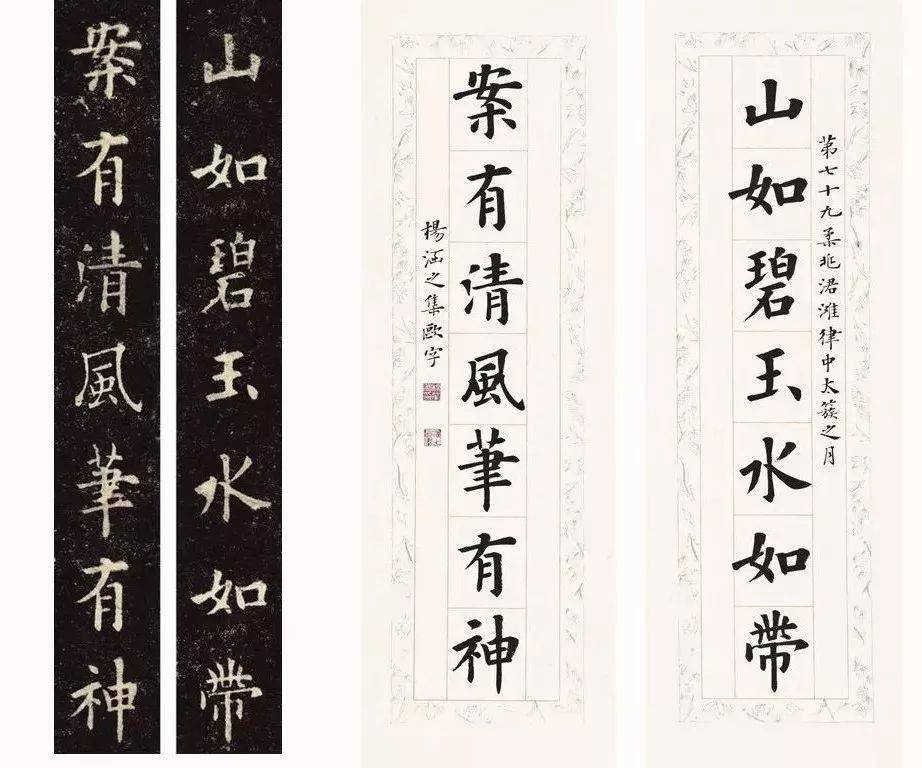 山如碧玉水如帶
案有清風筆有神
第七十九柔兆涒灘律中太簇之月
山如碧玉水如帶
案有清風筆有神
楊涵之集歐字